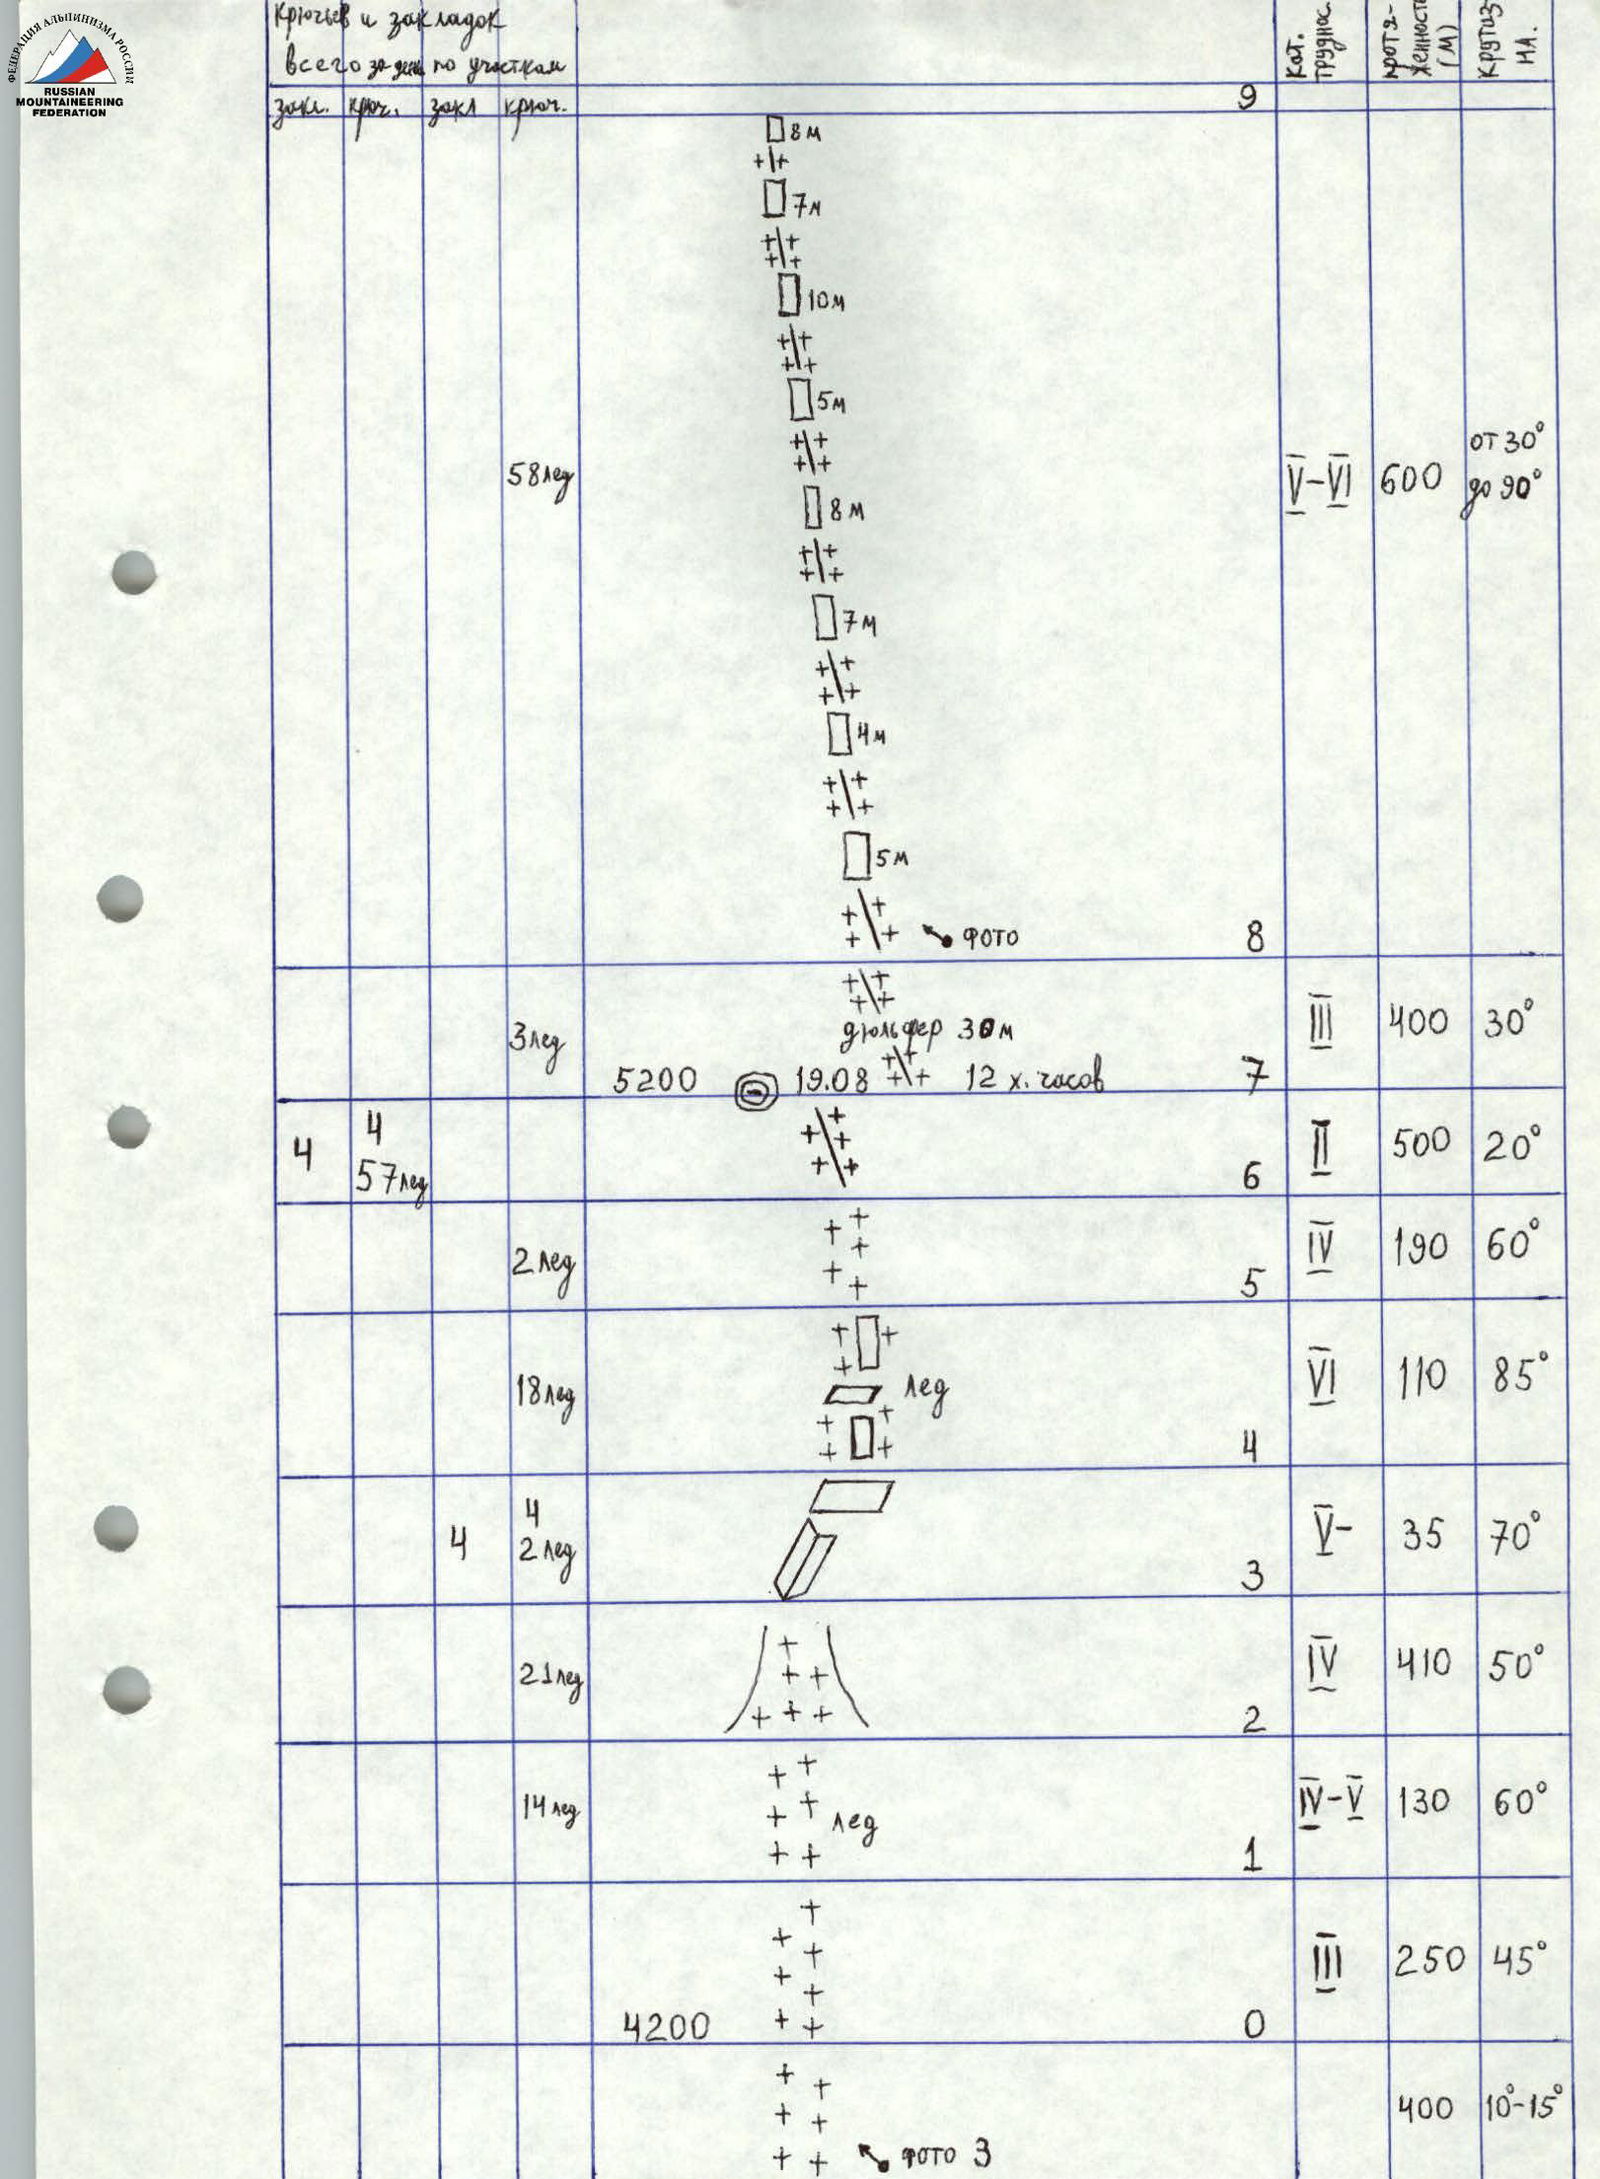 ФЕДЕРАЦИЯ АЛЬПИНИЗМА РОССИИ
RUSSIAN
MOUNTAINEERING
FEDERATION
Крючьев и закладок
всего за день по участкам
закл. крюч. закл крюч.
Кат. труднос.
протяженность (м)
крутизна.
9
8м
7м
10м
5м
58лед V-VI 600 от 30° до 90°
8м
7м
4м
5м
фото 8
3лед III 400 30°
дюльфер 30м
5200 19.08 12 х. часов 7
4 4 57лед II 500 20°
6
2лед IV 190 60°
5
18лед лед VI 110 85°
4
4 4 2лед V- 35 70°
3
21лед IV 410 50°
2
14лед лед IV-V 130 60°
1
III 250 45°
4200 0
400 10°-15°
фото 3